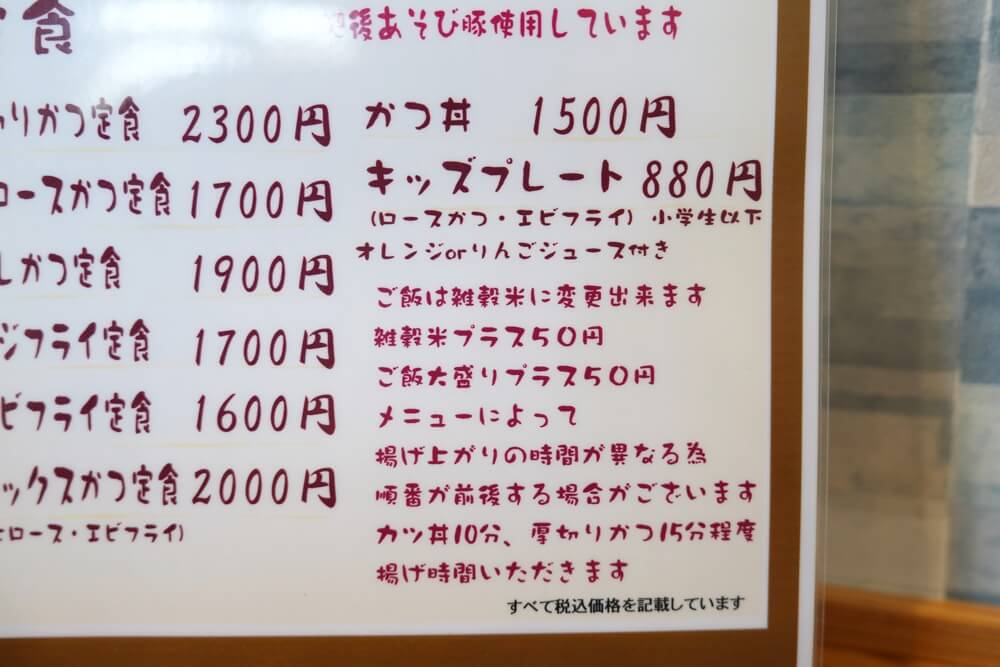 食
後あそび豚使用しています
りかつ定食 2300円
ロースかつ定食 1700円
しかつ定食 1900円
ジフライ定食 1700円
ビフライ定食 1600円
ックスかつ定食 2000円
ロース・エビフライ)
かつ丼 1500円
キッズプレート 880円
(ロースかつ・エビフライ) 小学生以下
オレンジorりんごジュース付き
ご飯は雑穀米に変更出来ます
雑穀米プラス50円
ご飯大盛りプラス50円
メニューによって
揚げ上がりの時間が異なる為
順番が前後する場合がございます
カツ丼10分、厚切りかつ15分程度
揚げ時間いただきます
すべて税込価格を記載しています